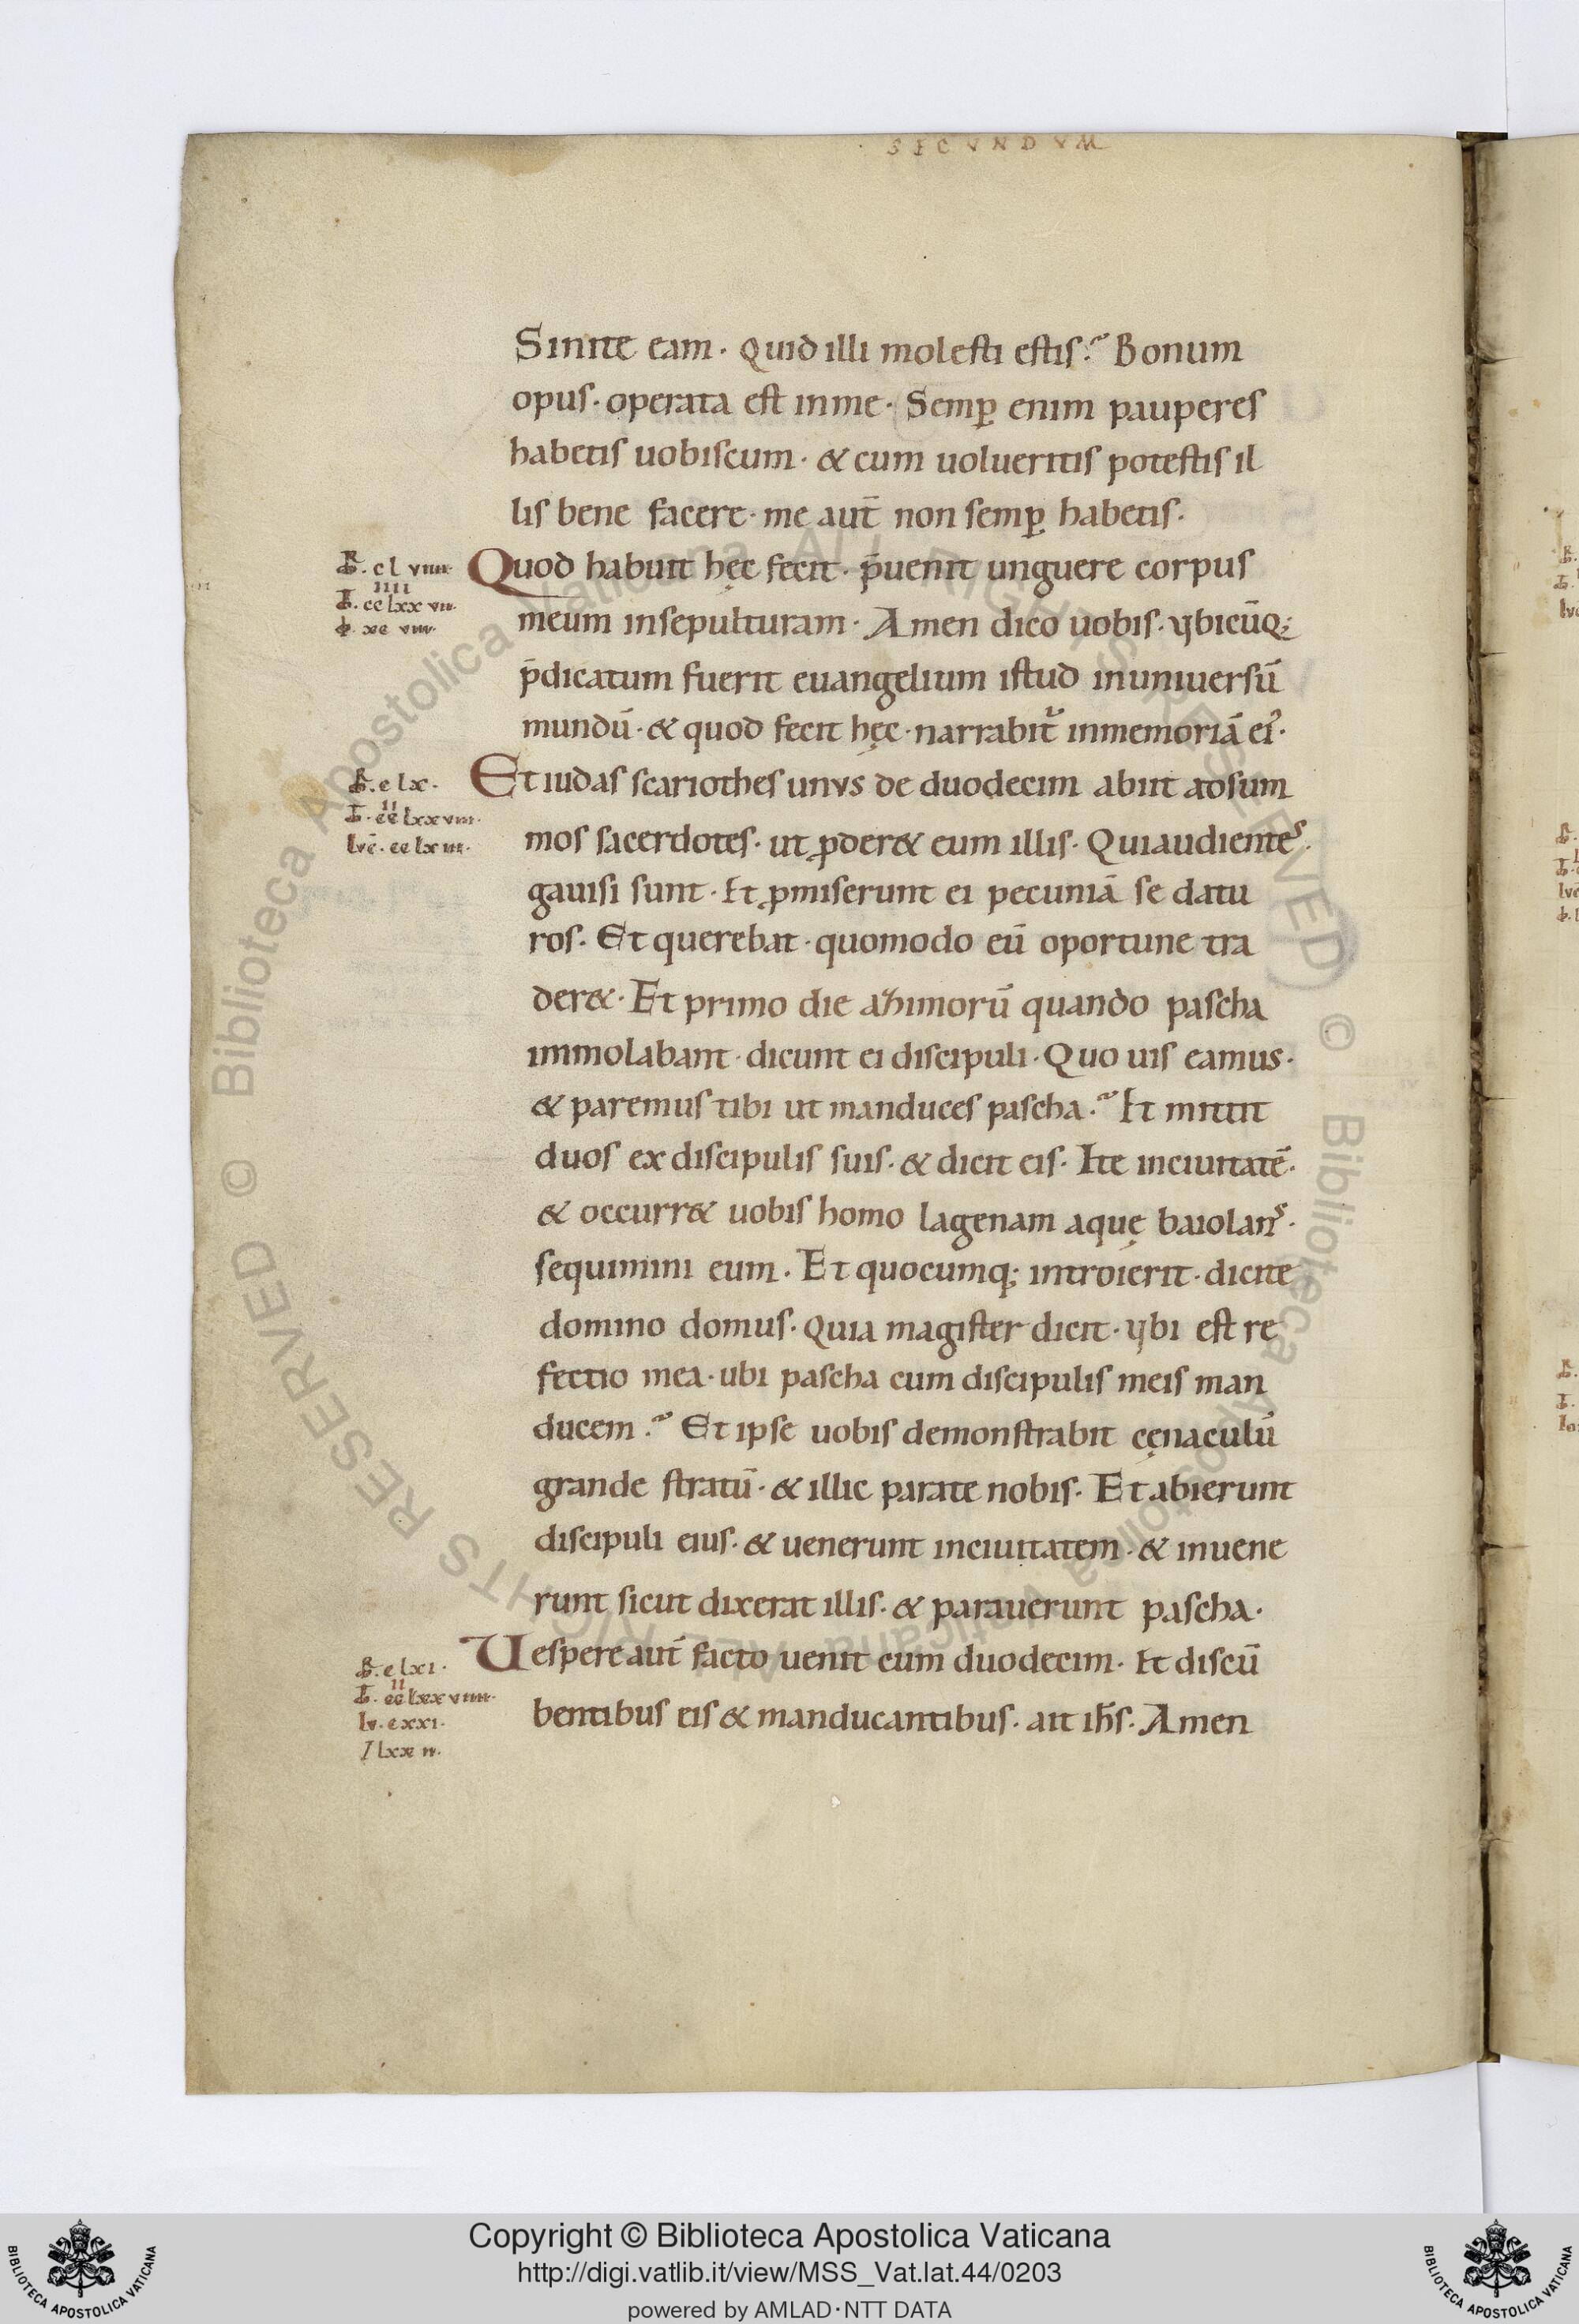 SECVNDVM
Sinite eam · Quid illi molesti estis? Bonum
opus · operata est inme · Semꝑ enim pauperes
habetis uobiscum · & cum uolueritis potestis il
lis bene facere · me aut̄ non semꝑ habetis ·
Quod habuit hęc fecit · p̄uenit unguere corpus
meum insepulturam · Amen dico uobis · Vbicūq;
p̄dicatum fuerit euangelium istud inuniuersū
mundū · & quod fecit hęc · narrabit᷑ inmemoriā ei᷒ ·
Et iudas scariothes unus de duodecim abiit adsum
mos sacerdotes · ut ꝓder& eum illis · Quiaudientes ·
gauisi sunt · Et ꝓmiserunt ei pecuniā se datu
ros · Et querebat · quomodo eū oportune tra
der& · Et primo die azimorū quando pascha
immolabant · dicunt ei discipuli · Quo uis eamus ·
& paremus tibi ut manduces pascha? Et mittit
duos ex discipulis suis · & dicit eis · Ite inciuitatē ·
& occurr& uobis homo lagenam aquę baiolans ·
sequimini eum · Et quocumq; introierit · dicite
domino domus · Quia magister dicit · Vbi est re
fectio mea · ubi pascha cum discipulis meis man
ducem? Et ipse uobis demonstrabit cęnaculū
grande stratū · & illic parate nobis · Et abierunt
discipuli eius · & uenerunt inciuitatem · & inuene
runt sicut dixerat illis · & parauerunt pascha ·
Uespere aut̄ facto uenit cum duodecim · Et discū
bentibus eis & manducantibus · ait ih̄s · Amen
Copyright © Biblioteca Apostolica Vaticana
http://digi.vatlib.it/view/MSS_Vat.lat.44/0203
powered by AMLAD·NTT DATA
BIBLIOTECA APOSTOLICA VATICANA
BIBLIOTECA APOSTOLICA VATICANA
© Biblioteca Apostolica Vaticana ALL RIGHTS RESERVED
© Biblioteca Apostolica Vaticana ALL RIGHTS RESERVED